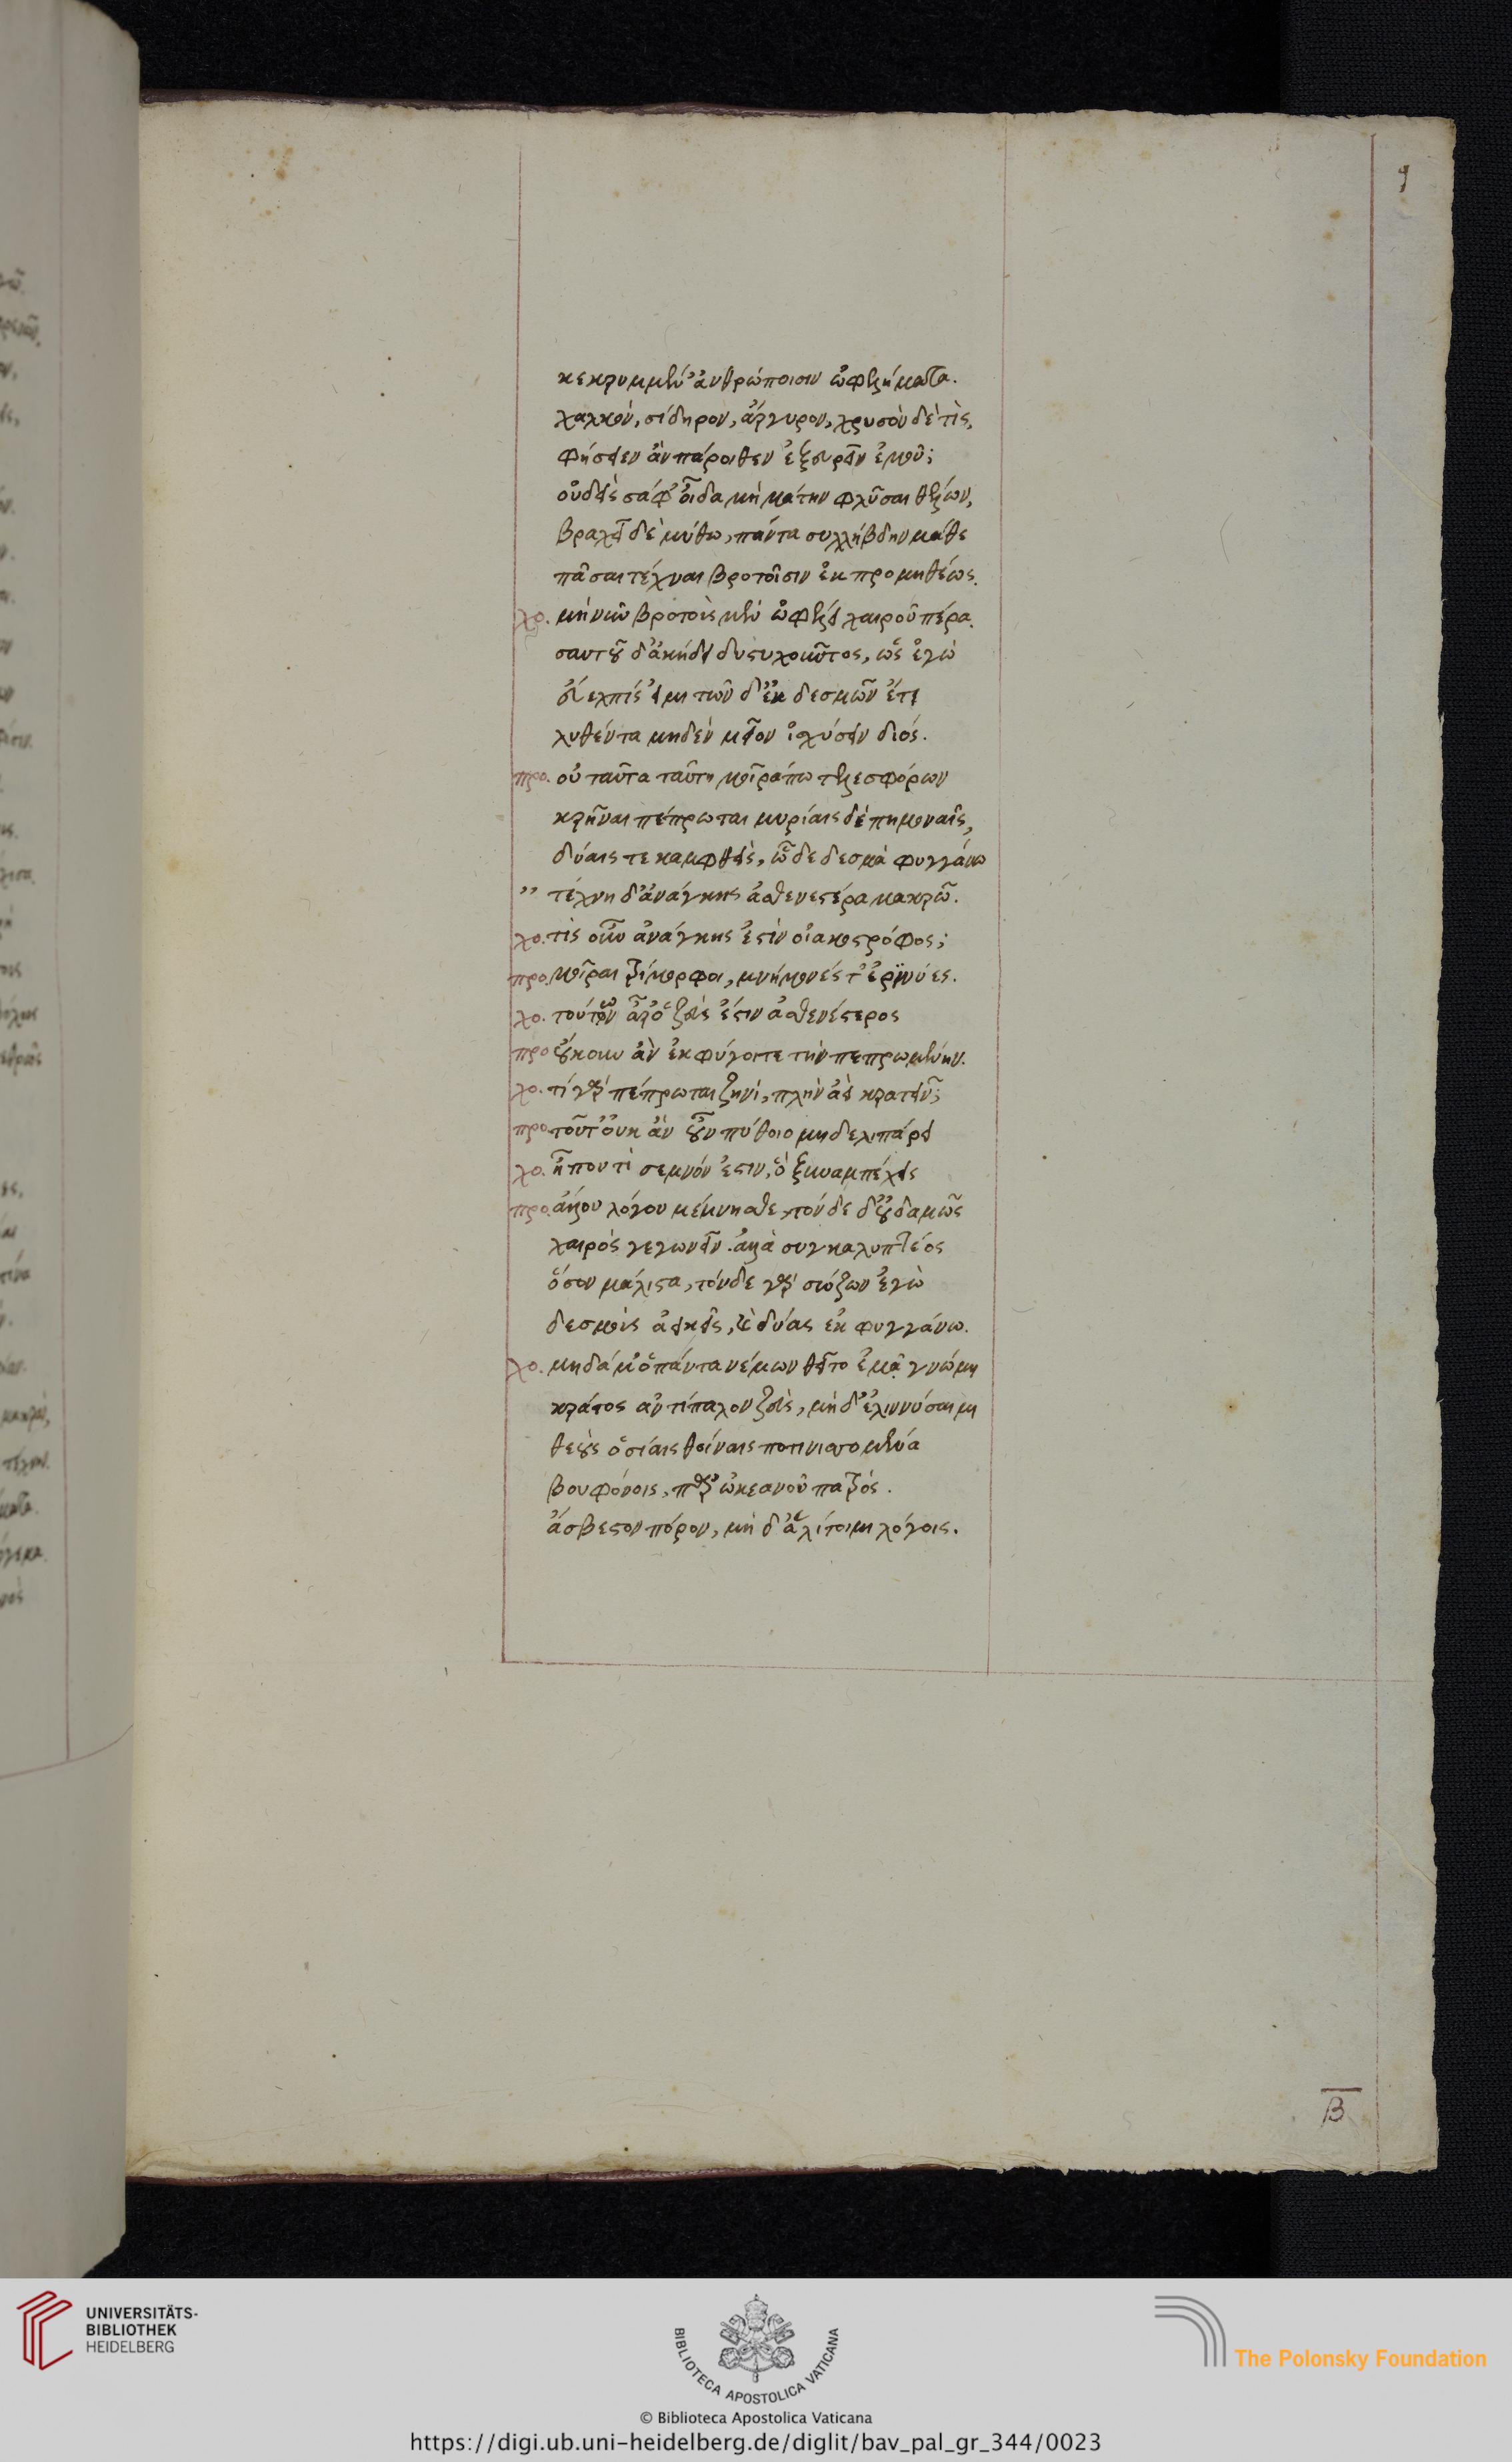 9
κεκρυμμέν' ἀνθρώποισιν ὠφελήματα.
χαλκὸν, σίδηρον, ἄργυρον, χρυσὸν δὲ τίς,
φήσειεν ἂν πάροιθεν ἐξευρεῖν ἐμοῦ;
οὐδεὶς σάφ' οἶδα μὴ μάτην φλῦσαι θέλων,
βραχεῖ δὲ μύθω, πάντα συλλήβδην μάθε
πᾶσαι τέχναι βροτοῖσιν ἐκ προμηθέως.
χο. μὴ νῦν βροτοὺς μὲν ὠφέλει καιροῦ πέρα.
σαυτοῦ δ' ἀκήδει δυστυχοῦντος, ὡς ἐγὼ
εὔελπίς εἰμι τῶν δ' ἐκ δεσμῶν ἔτι
λυθέντα μηδὲν μεῖον ἰσχύσειν διός.
προ. οὐ ταῦτα ταύτη μοῖρά πω τελεσφόρων
κρῆναι πέπρωται μυρίαις δὲ πημοναῖς,
δύαις τε καμφθεὶς, ὧδε δεσμὰ φυγγάνω
" τέχνη δ' ἀνάγκης ἀσθενεστέρα μακρῶ.
χο. τίς οὖν ἀνάγκης ἐστὶν οἰακοστρόφος;
προ. μοῖραι τρίμορφοι, μνήμονές τ' ἐριννύες.
χο. τούτων ἆρ' ὁ ζεὺς ἐστιν ἀσθενέστερος
προ οὔκουν ἂν ἐκφύγοιτε τὴν πεπρωμένην.
χο. τί γὰρ πέπρωται ζηνὶ, πλὴν ἀεὶ κρατεῖν;
προ τοῦτ' οὐκ ἂν οὖν πύθοιο μηδε λιπάρει
χο. ἦ που τι σεμνόν ἐστιν, ὃ ξυναμπέχεις
προ. ἄλλου λόγου μέμνησθε, τόνδε δ' οὐδαμῶς
καιρὸς γεγωνεῖν. ἀλλὰ συγκαλυπτέος
ὅσον μάλιστα, τόνδε γὰρ σώζων ἐγὼ
δεσμοὺς ἀεικεῖς, καὶ δύας ἐκφυγγάνω.
χο. μηδάμ' ὁ πάντα νέμων θεῖτο ἐμᾷ γνώμη
κράτος ἀντίπαλον ζεὺς, μὴδ' ἐλιννύσαιμι
θεοὺς ὁσίαις θοίναις ποτινισσομένα
βουφόνοις, παρ' ὠκεανοῦ πατρός.
ἄσβεστον πόρον, μὴ δ' ἀλίτοιμι λόγοις.
Β
UNIVERSITÄTS-
BIBLIOTHEK
HEIDELBERG
BIBLIOTECA APOSTOLICA VATICANA
The Polonsky Foundation
© Biblioteca Apostolica Vaticana
https://digi.ub.uni-heidelberg.de/diglit/bav_pal_gr_344/0023